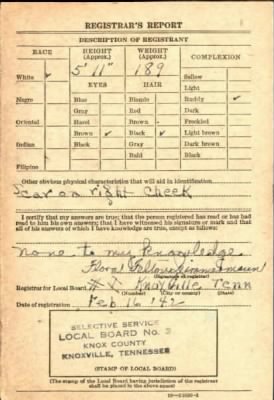 REGISTRAR'S REPORT
DESCRIPTION OF REGISTRANT
RACE HEIGHT (Approx.) WEIGHT (Approx.) COMPLEXION
5' 11" 189
White ✓ EYES HAIR Sallow
Light
Negro Blue Blonde Ruddy ✓
Gray Red Dark
Oriental Hazel Brown Freckled
Brown ✓ Black ✓ Light brown
Indian Black Gray Dark brown
Bald Black
Filipino
Other obvious physical characteristics that will aid in identification
Scar on right Cheek
I certify that my answers are true; that the person registered has read or has had
read to him his own answers; that I have witnessed his signature or mark and that
all of his answers of which I have knowledge are true, except as follows:
None to my Knowledge
(Signature of registrar)
Registrar for Local Board Knoxville Tenn
(Number) (City or county) (State)
Date of registration Feb 16 '42
SELECTIVE SERVICE
LOCAL BOARD No.
KNOX COUNTY
KNOXVILLE, TENNESSEE
(STAMP OF LOCAL BOARD)
(The stamp of the Local Board having jurisdiction of the registrant
shall be placed in the above space.)